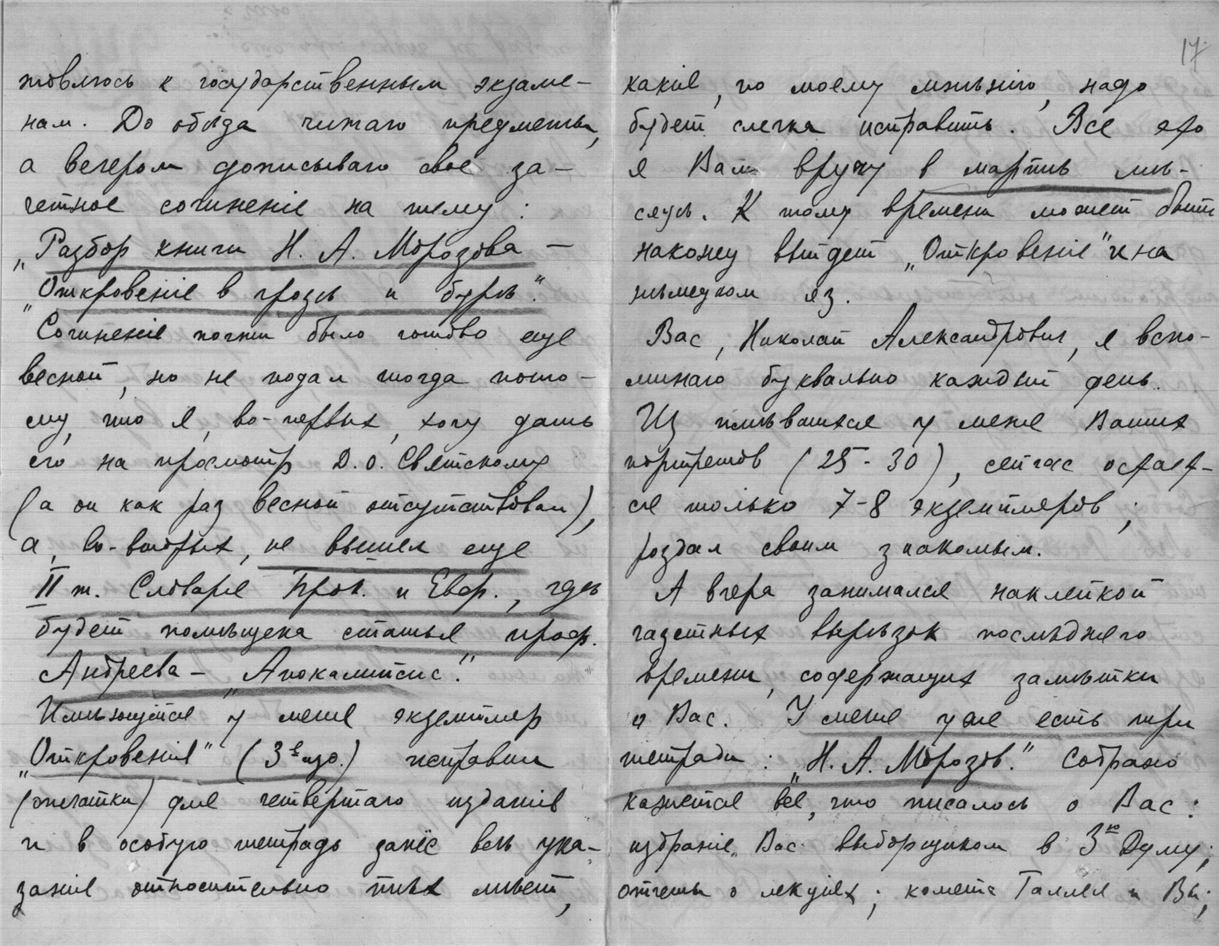 товлюсь к государственным экзаме-
нам. До обѣда читаю предметы,
а вечером дописываю свое за-
четное сочиненіе на тему:
„Разбор книги Н. А. Морозова —
„Откровеніе в грозѣ и бурѣ“
Сочиненіе почти было готово еще
весной, но не подал тогда пото-
му, что я, во-первых, хочу дать
его на просмотр Д. О. Святскому
(а он как раз весной отсутствовал),
а, во-вторых, не вышел еще
II т. Словаря Брок. и Ефр., гдѣ
будет помѣщена статья проф.
Андреева — „Апокалипсис“.
Имѣющійся у меня экземпляр
„Откровенія“ (3е изд.) исправил
(опечатки) для четвертаго изданія
и в особую тетрадь занёс всѣ ука-
занія относительно тѣх мѣст,
17
какія, по моему мнѣнію, надо
будет слегка исправить. Все это
я Вам вручу в мартѣ мѣ-
сяцѣ. К тому времени может быть
наконец выйдет „Откровеніе“ и на
нѣмецком яз.
Вас, Николай Александрович, я вспо-
минаю буквально каждый день.
Из имѣвшихся у меня Ваших
портретов (25-30), сейчас остает-
ся только 7-8 экземпляров;
роздал своим знакомым.
А вчера занимался наклейкой
газетных вырѣзок послѣдняго
времени, содержащих замѣтки
о Вас. У меня уже есть три
тетради: „Н. А. Морозов.“ Собрано
кажется всё, что писалось о Вас:
избраніе Вас выборщиком в 3ю Думу;
отчеты о лекціях; комета Галлея и Вы;